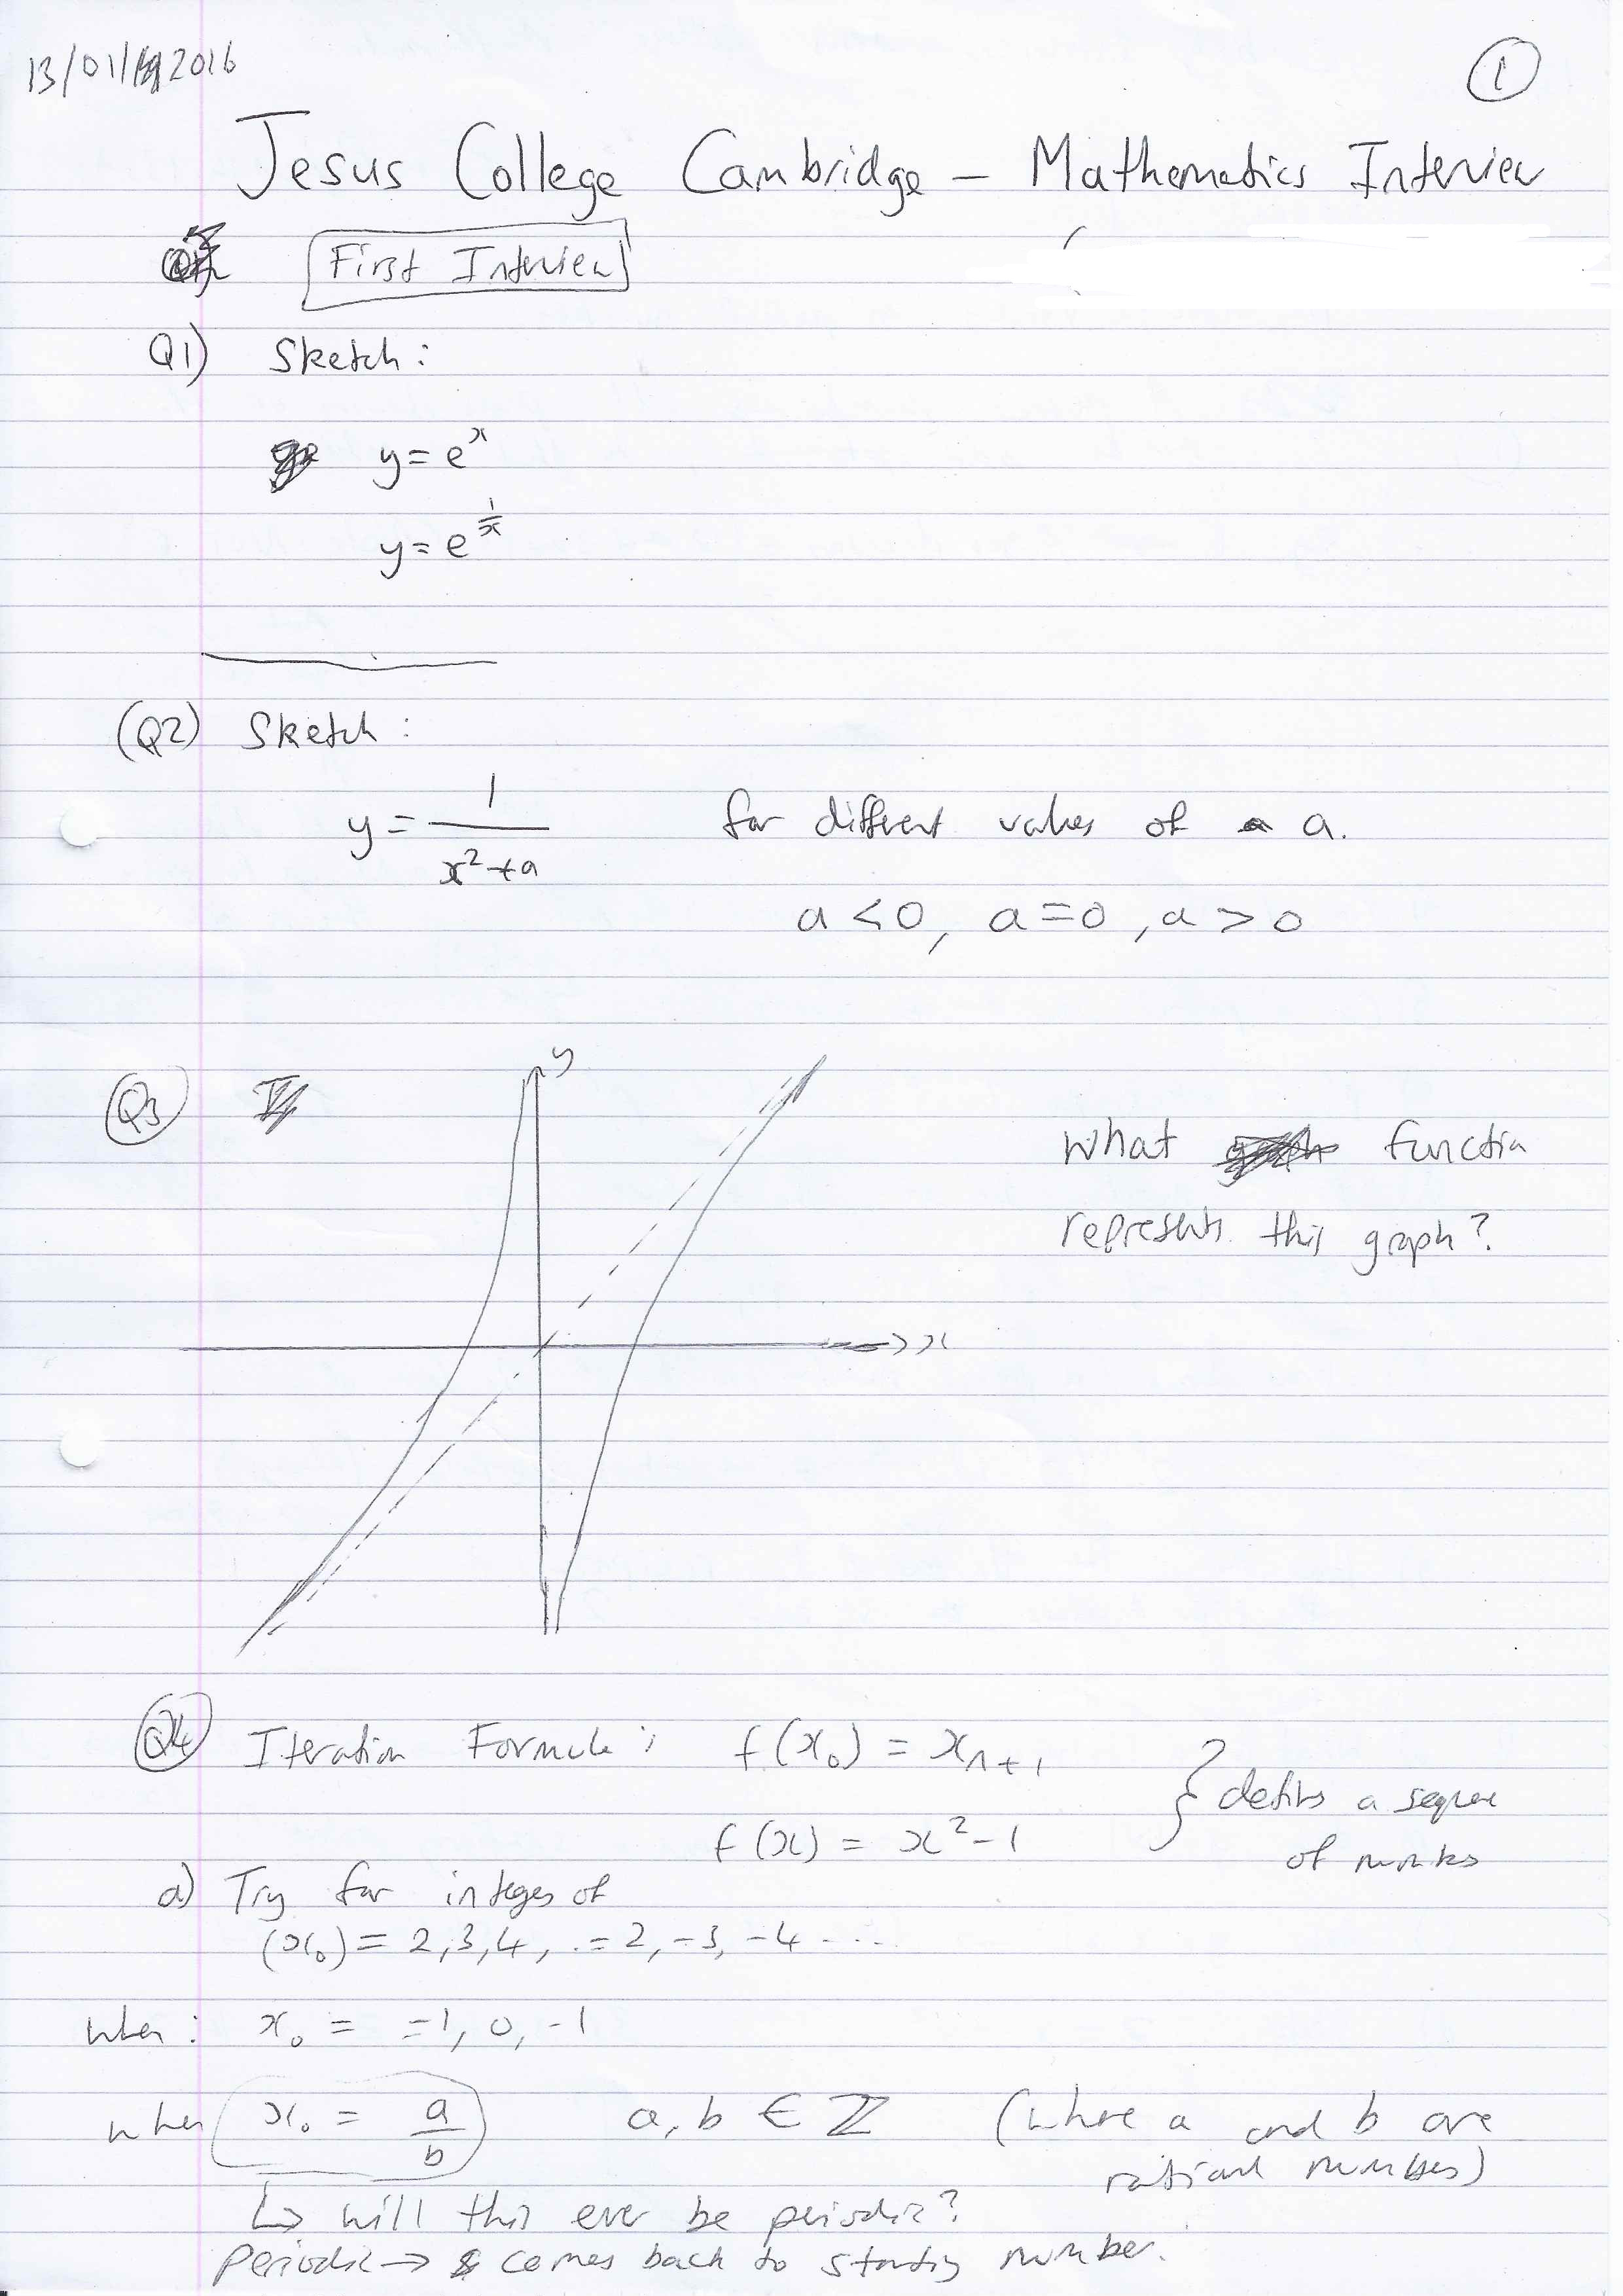 13/01/2016
1
Jesus College Cambridge – Mathematics Interview
First Interview
Q1) Sketch:
y = e^x
y = e^(1/x)
(Q2) Sketch:
y = 1/(x²+a) for different values of a.
a < 0, a = 0, a > 0
Q3
y
What function
represents this graph?
x
Q4 Iteration Formula: f(x₀) = xₙ₊₁
f(x) = x² – 1 } defins a sequence
of numbers
a) Try for integes of
(x₀) = 2, 3, 4, . = 2, -3, -4 ....
when: x₀ = =1, 0, -1
when x₀ = a/b a, b ∈ ℤ (where a and b are
rational numbers)
↳ will this ever be periodic?
Periodic → comes back to starting number.